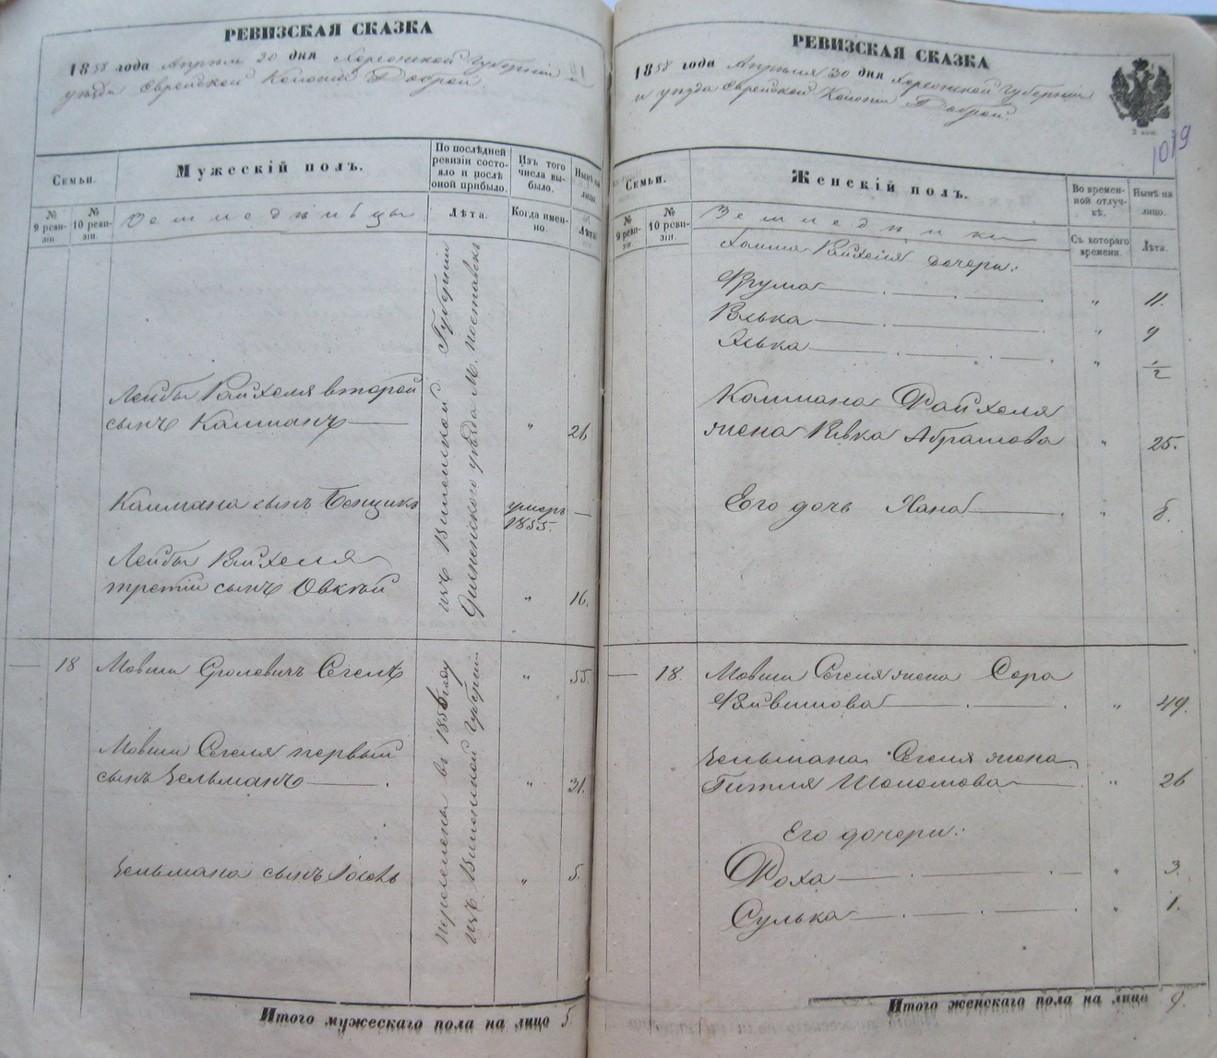 РЕВИЗСКАЯ СКАЗКА
1858 года Апреля 30 дня Херсонской Губернии и
уезда Еврейской Колонии Доброй
Семьи.
Мужескій полъ.
По последней
ревизіи состо-
яло и после
оной прибыло.
Изъ того
числа вы-
было.
Ныне на
лицо.
№
9 реви-
зіи.
№
10 реви-
зіи.
Земледельцы
Лета.
Когда имен-
но.
Лета
изъ Виленской Губерніи
уезда М. поставск
Лейбы Райхеля второй
сынъ Калманъ
"
26
Калмана сынъ Бенцин
умеръ
1855.
—
Лейбы Райхеля
третій сынъ Овсей
"
16.
18
Мовши Сролевичъ Сегель
"
55.
Мовши Сегеля первый
сынъ Зельманъ
"
31.
Зельмана сынъ Іосель
"
5.
въ 1856 году
изъ Виленской Губерніи
Итого мужескаго пола на лицо 5.
РЕВИЗСКАЯ СКАЗКА
1858 года Апреля 30 дня Херсонской Губерніи
и уезда Еврейской Колоніи Доброй.
2 коп.
1019
Семьи.
Женскій полъ.
Во времен-
ной отлуч-
ке.
Ныне на
лицо.
№
9 реви-
зіи.
№
10 реви-
зіи.
Земледелки
Съ котораго
времени.
Лета.
Райхеля дочери:
Фрума
"
11.
Елька
"
9
Элька
"
1/2
Калмана Райхеля
жена Ривка Абрамова
"
25.
Его дочь Хана
"
6.
18.
Мовши Сегеля жена Сора
Файвишова
"
49.
Зельмана Сегеля жена
Гитля Шоломова
"
26
Его дочери:
Роха
"
3.
Сулька
"
1.
Итого женскаго пола на лицо 9.